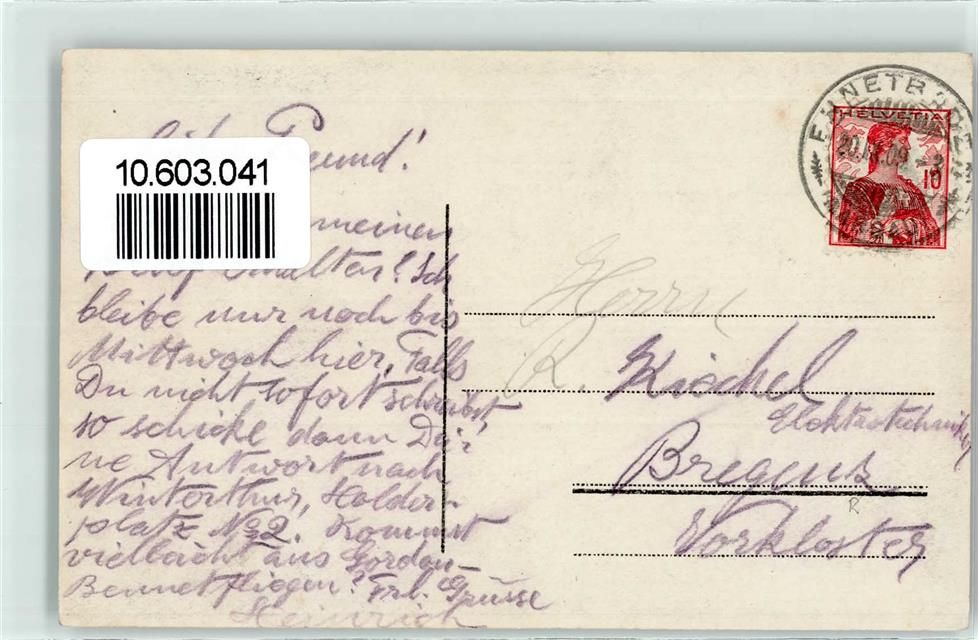 10.603.041
Freund!
meinen
Brief erhalten? Ich
bleibe nur noch bis
Mittwoch hier. Falls
Du nicht sofort schreibst,
so schicke dann Dei-
ne Antwort nach
Winterthur, Holder-
platz No 2. Kommst
vielleicht ans Gordon-
Bennetfliegen? Frl. Grüsse
Heinrich
HELVETIA
10
ENNETB
20. 09 - 3
Herrn
R. Kiechel
Elektrotechniker
Bregenz
Vorkloster
R